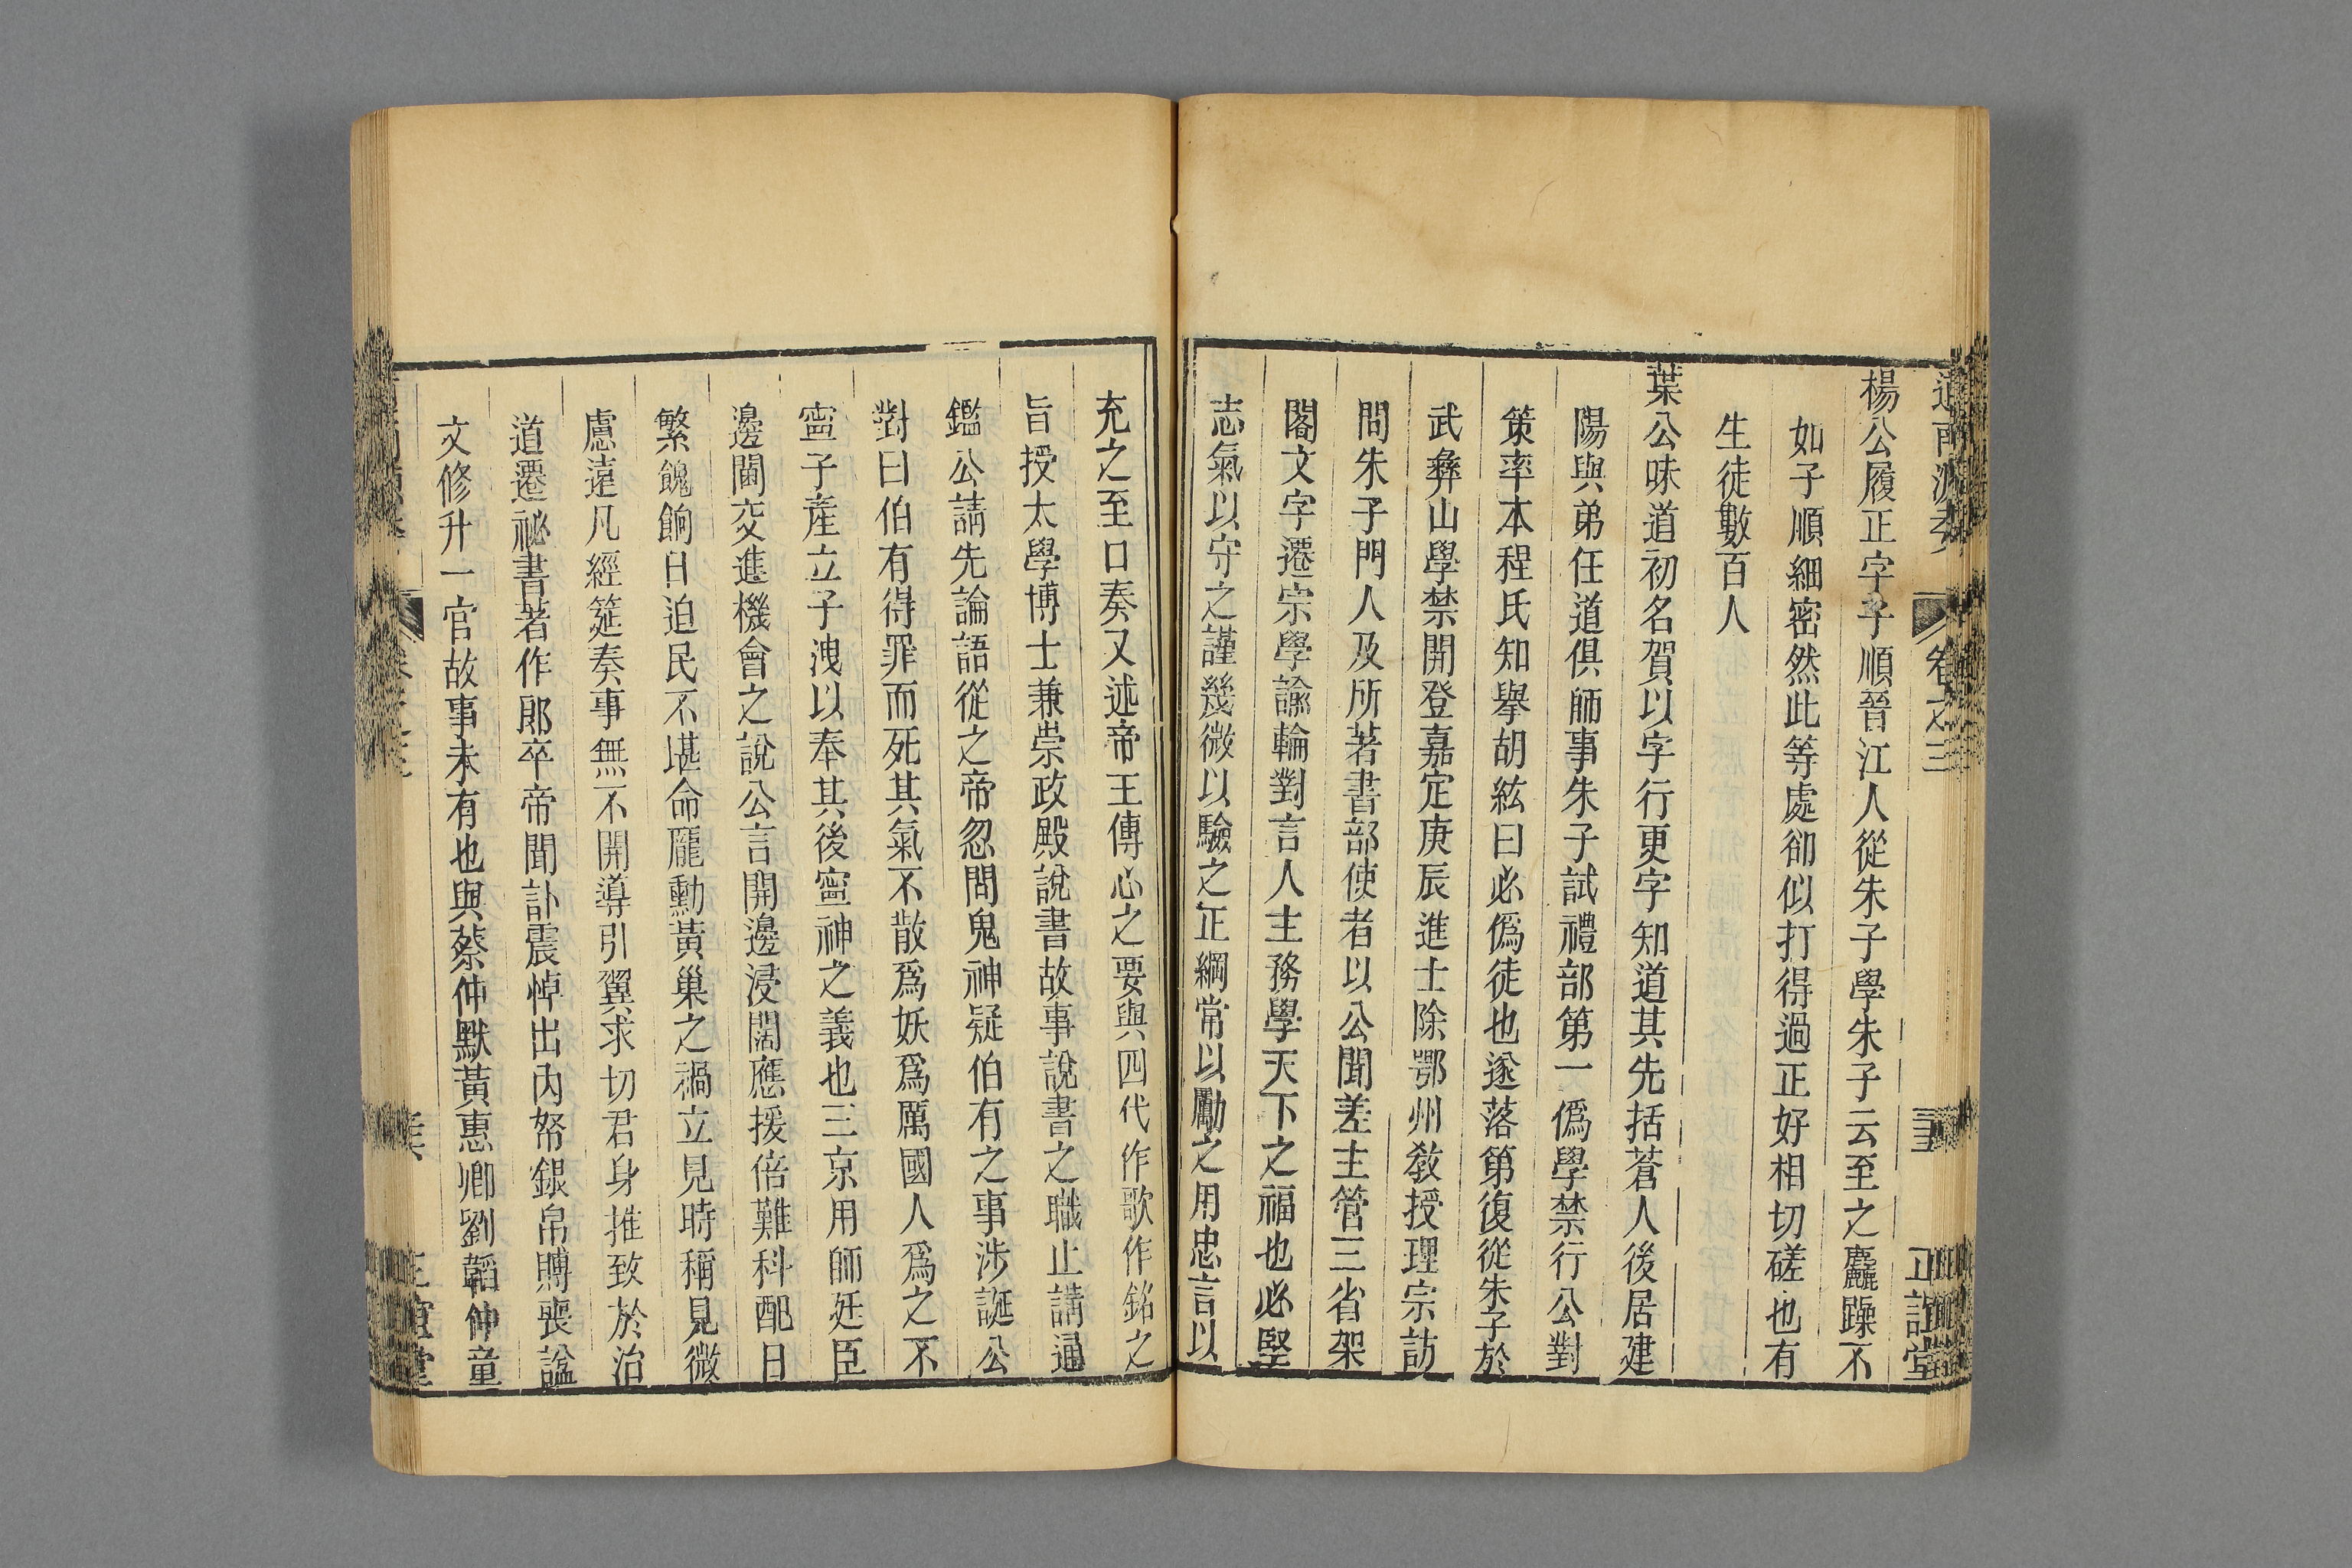 卷之三
正誼堂
楊公履正字子順晉江人從朱子學朱子云至之麤躁不
如子順細密然此等處卻似打得過正好相切磋也有
生徒數百人
葉公味道初名賀以字行更字知道其先括蒼人後居建
陽與弟任道俱師事朱子試禮部第一僞學禁行公對
策率本程氏知舉胡紘曰必僞徒也遂落第復從朱子於
武彝山學禁開登嘉定庚辰進士除鄂州敎授理宗訪
問朱子門人及所著書部使者以公聞差主管三省架
閣文字遷宗學諭輪對言人主務學天下之福也必堅
志氣以守之謹幾微以驗之正綱常以勵之用忠言以
充之至口奏又述帝王傳心之要與四代作歌作銘之
旨授太學博士兼崇政殿說書故事說書之職止講通
鑑公請先論語從之帝忽問鬼神疑伯有之事涉誕公
對曰伯有得罪而死其氣不散爲妖爲厲國人爲之不
寍子產立子洩以奉其後寍神之義也三京用師廷臣
邊閫交進機會之說公言開邊浸闊應援倍難科配日
繁餽餉日迫民不堪命龐勳黃巢之禍立見時稱見微
慮遠凡經筵奏事無不開導引翼求切君身推致於治
道遷祕書著作郎卒帝聞訃震悼出內帑銀帛賻喪諡
文修升一官故事未有也與蔡仲默黃惠卿劉韜仲童